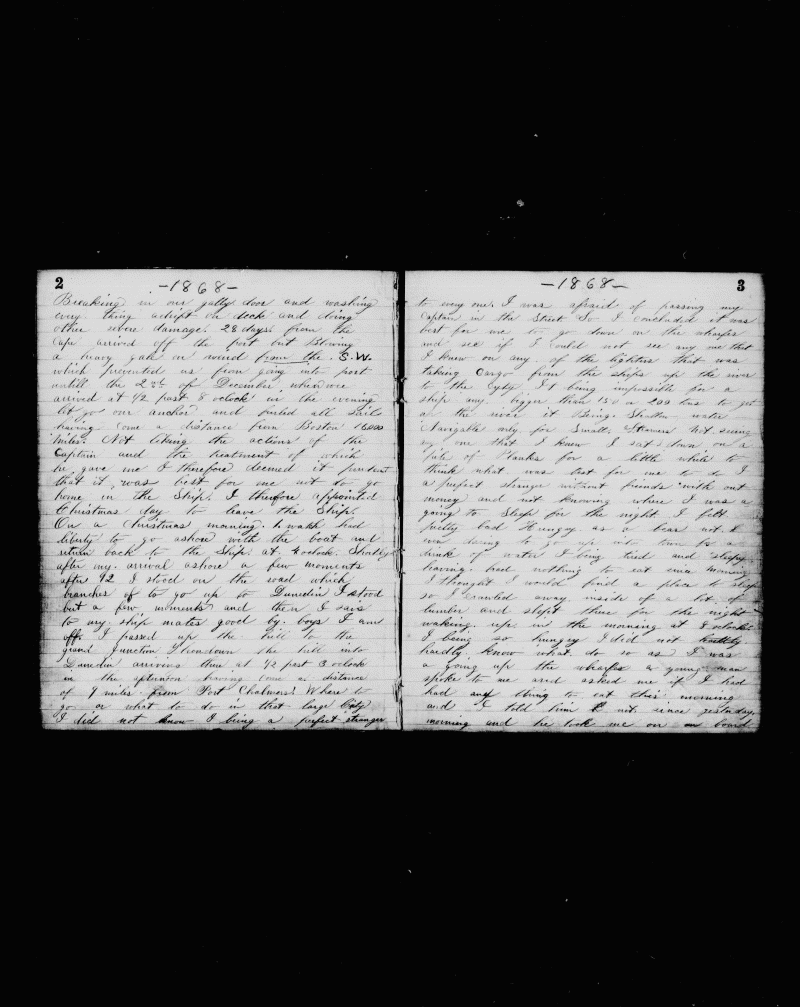 2
-1868-
Breaking in our galley door and washing
every thing adrift on deck and doing
other severe damage. 28 days from the
Cape arrived off the port but Blowing
a heavy gale on wind from the S.W.
which prevented us from going into port
untill the 22nd of December when we
arrived at 1/2 past 8 oclock in the evening
let go our anchor and furled all Sails
having come a distance from Boston 16000
Miles. Not liking the actions of the
Captain and the treatment of which
he gave me I therefore deemed it prudent
that it was best for me not to go
home in the Ship. I therefore appointed
Christmas day to leave the Ship.
On a Christmas morning. watch had
liberty to go ashore with the boat and
return back to the Ship at oclock. Shortly
after my arrival ashore a few moments
after 12 I stood on the road which
branches of to go up to Dunedin I stood
but a few moments and then I said
to my ship mates good by. boys I am
off. I passed up the hill to the
grand Junction down the hill into
Dunedin arriving there at 1/2 past 3 oclock
in the afternoon having come a distance
of 9 miles from Port Chalmers. Where to
go or what to do in that large City
I did not know I being a perfect stranger
3
-1868-
to every one. I was afraid of passing my
Captain in the Street So I concluded it was
best for me to go down on the wharfes
and see if I could not see any one that
I knew on any of the lighters that was
taking Cargo from the ships up the river
to the City It being impossible for a
ship any bigger than 150 or 200 tons to get
the river it Being Shallow water
Navigable only for Small Steamers Not seeing
any one that I knew I sat down on a
pile of Planks for a little while to
think what was best for me to do I
a perfect stranger without friends with out
money and not knowing where I was a
going to Sleep for the night I felt
pretty bad Hungry as a bear not
even daring to go up into town for a
drink of water I being tired and sleepy
having had nothing to eat since morning
I thought I would find a place to sleep
so I crawled away inside of a lot of
lumber and slept there for the night
waking up in the morning at 8 oclock
I being so hungry I did not
hardly know what do so as I was
a going up the wharfe a young man
spoke to me and asked me if I had
had any thing to eat this morning
and I told him not since yesterday
morning and he took me on board